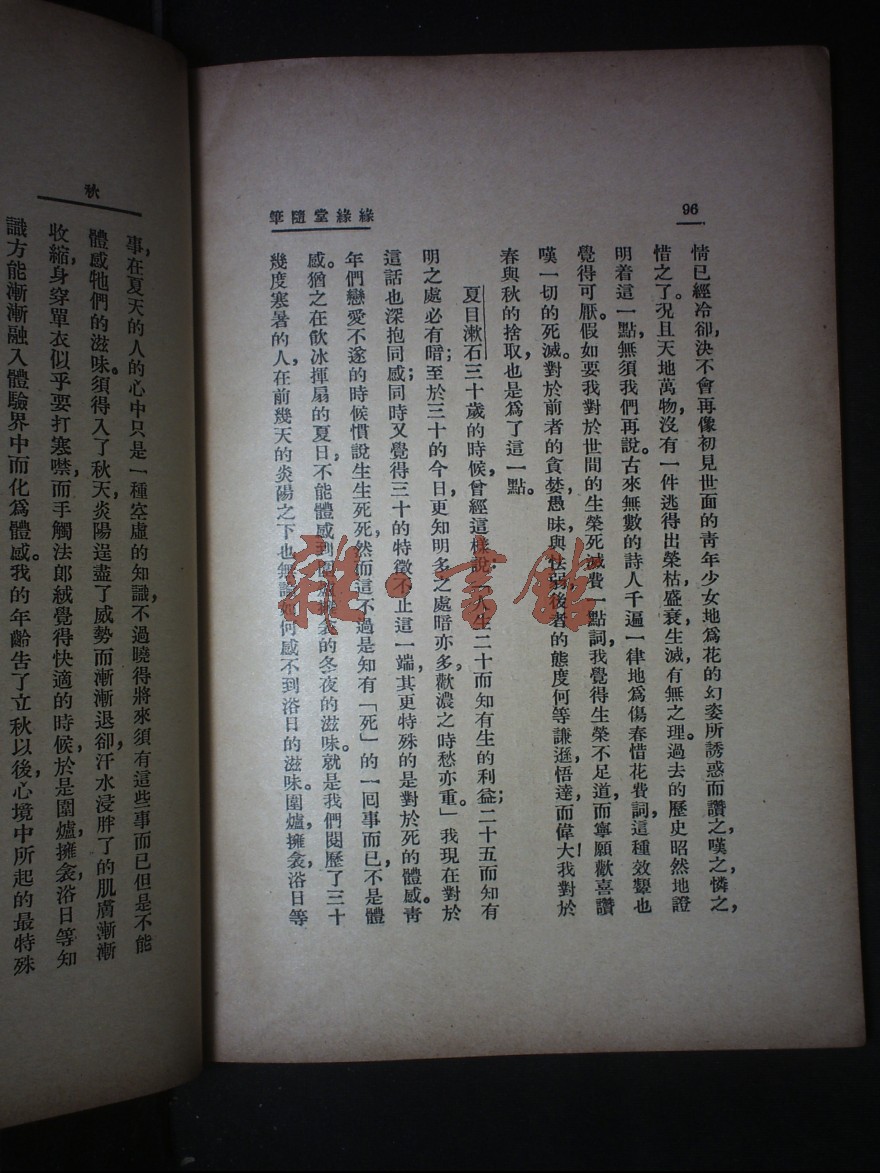 96
緣緣堂隨筆
情已經冷卻，決不會再像初見世面的靑年少女地爲花的幻姿所誘惑而讚之，嘆之，憐之，
惜之了。況且天地萬物，沒有一件逃得出榮枯，盛衰，生滅，有無之理。過去的歷史昭然地證
明着這一點，無須我們再說。古來無數的詩人千遍一律地爲傷春惜花費詞，這種效顰也
覺得可厭。假如要我對於世間的生榮死滅費一點詞，我覺得生榮不足道，而寧願歡喜讚
嘆一切的死滅。對於前者的貪婪，愚昧，與怯弱，後者的態度何等謙遜，悟達，而偉大！我對於
春與秋的捨取，也是爲了這一點。
夏目漱石三十歲的時候，曾經這樣說：「人生二十而知有生的利益；二十五而知有
明之處必有暗；至於三十的今日，更知明多之處暗亦多，歡濃之時愁亦重。」我現在對於
這話也深抱同感；同時又覺得三十的特徵不止這一端，其更特殊的是對於死的體感。靑
年們戀愛不遂的時候慣說生生死死，然而這不過是知有「死」的一回事而已，不是體
感。猶之在飲冰揮扇的夏日，不能體感到圍爐擁衾的冬夜的滋味。就是我們閱歷了三十
幾度寒暑的人，在前幾天的炎陽之下也無論如何感不到浴日的滋味。圍爐，擁衾，浴日等
秋
事，在夏天的人的心中只是一種空虛的知識，不過曉得將來須有這些事而已，但是不能
體感牠們的滋味。須得入了秋天，炎陽逞盡了威勢而漸漸退卻，汗水浸胖了的肌膚漸漸
收縮，身穿單衣似乎要打寒噤，而手觸法郎絨覺得快適的時候，於是圍爐，擁衾，浴日等知
識方能漸漸融入體驗界中而化爲體感。我的年齡告了立秋以後，心境中所起的最特殊
雜·書館